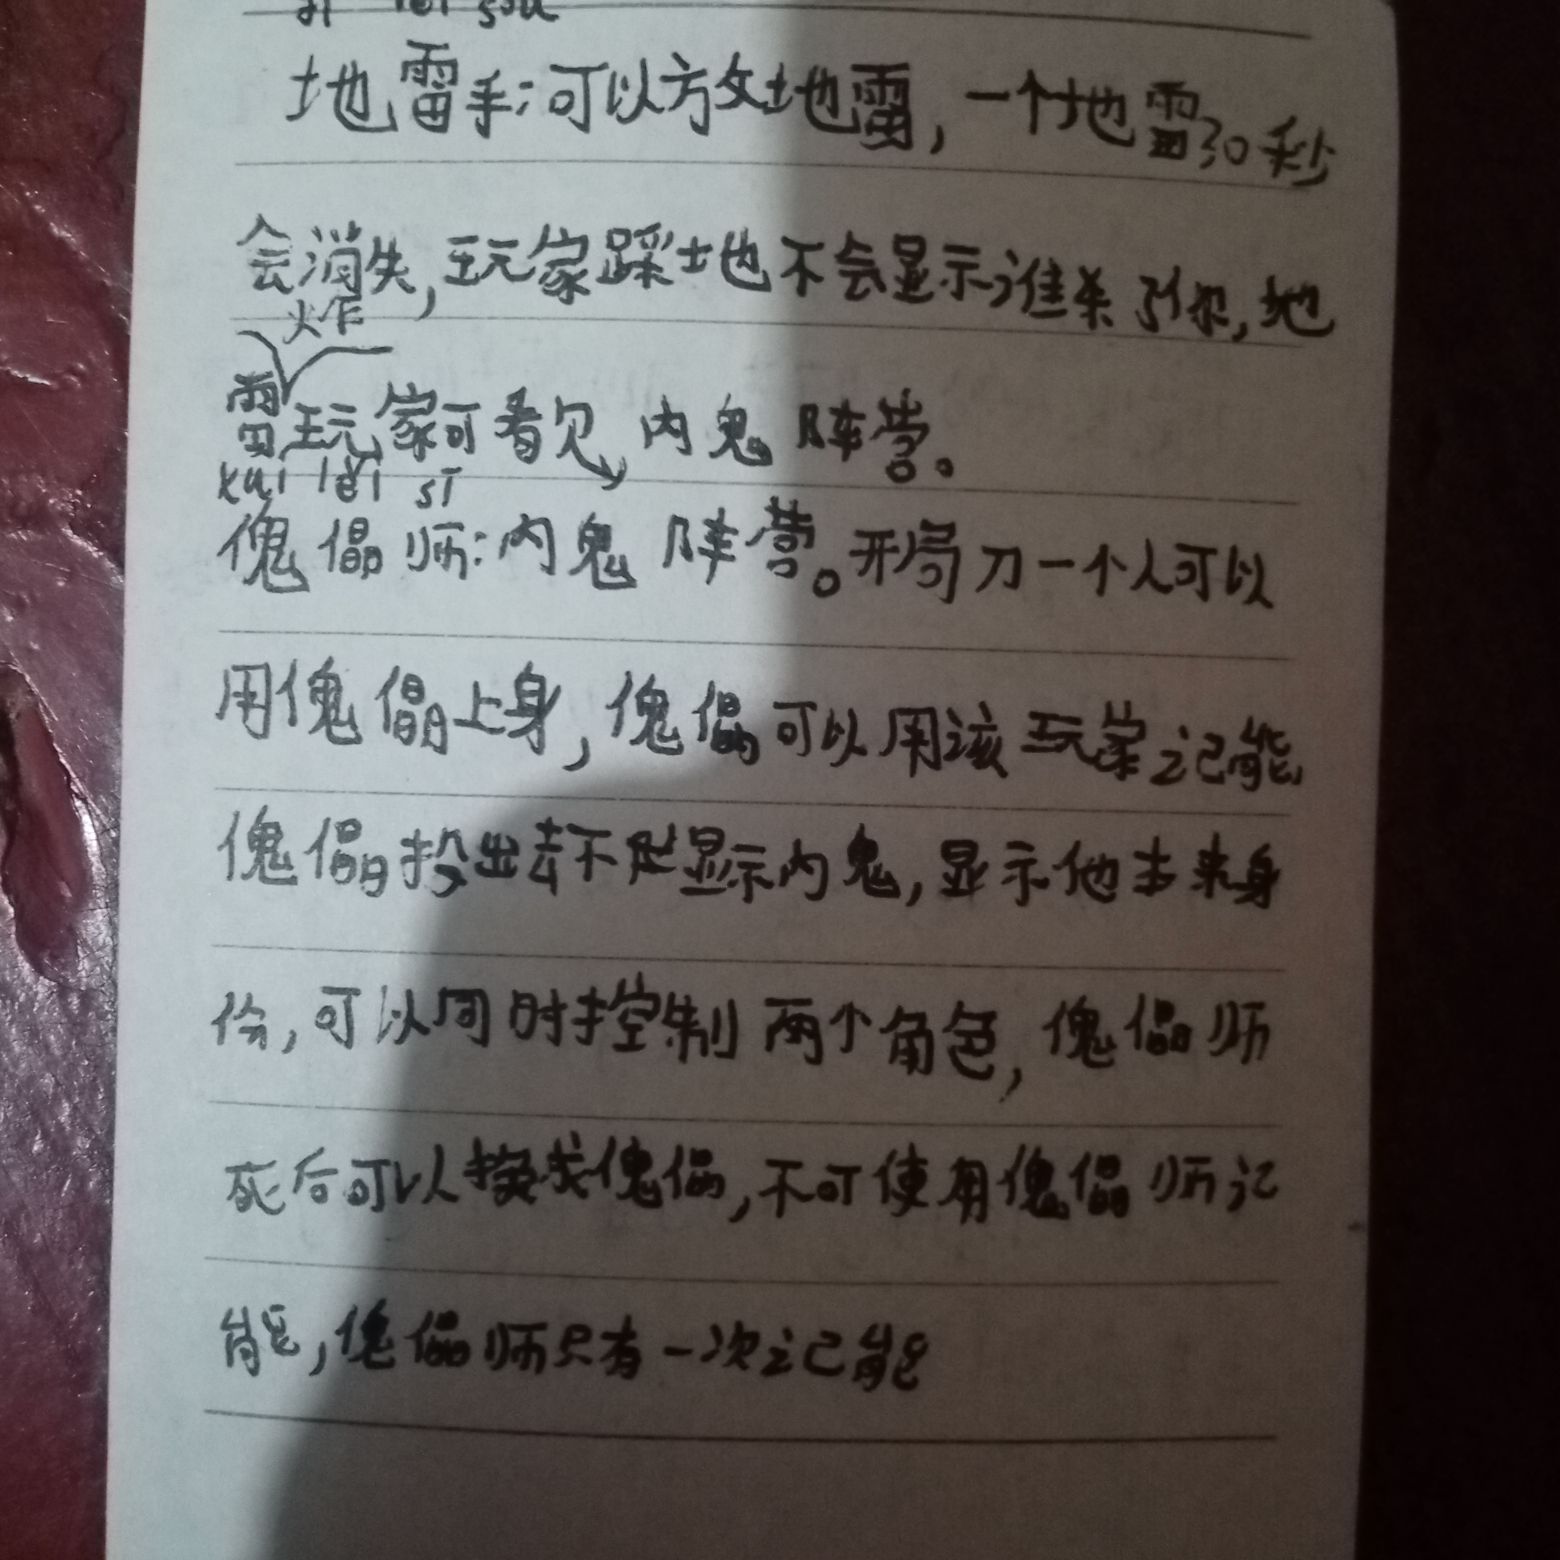 地雷手:可以方文地雷,一个地雷30秒
会消失,玩家踩地不会显示谁杀了你,地
炸
雷玩家可看见,内鬼阵营。
kuí lěi sī
傀儡师:内鬼阵营。开局刀一个人可以
用傀儡上身,傀儡可以用该玩家记能,
傀儡投出去不是显示内鬼,显示他本来身
份,可以同时控制两个角色,傀儡师
死后可以换成傀儡,不可使用傀儡师记
能,傀儡师只有一次记能